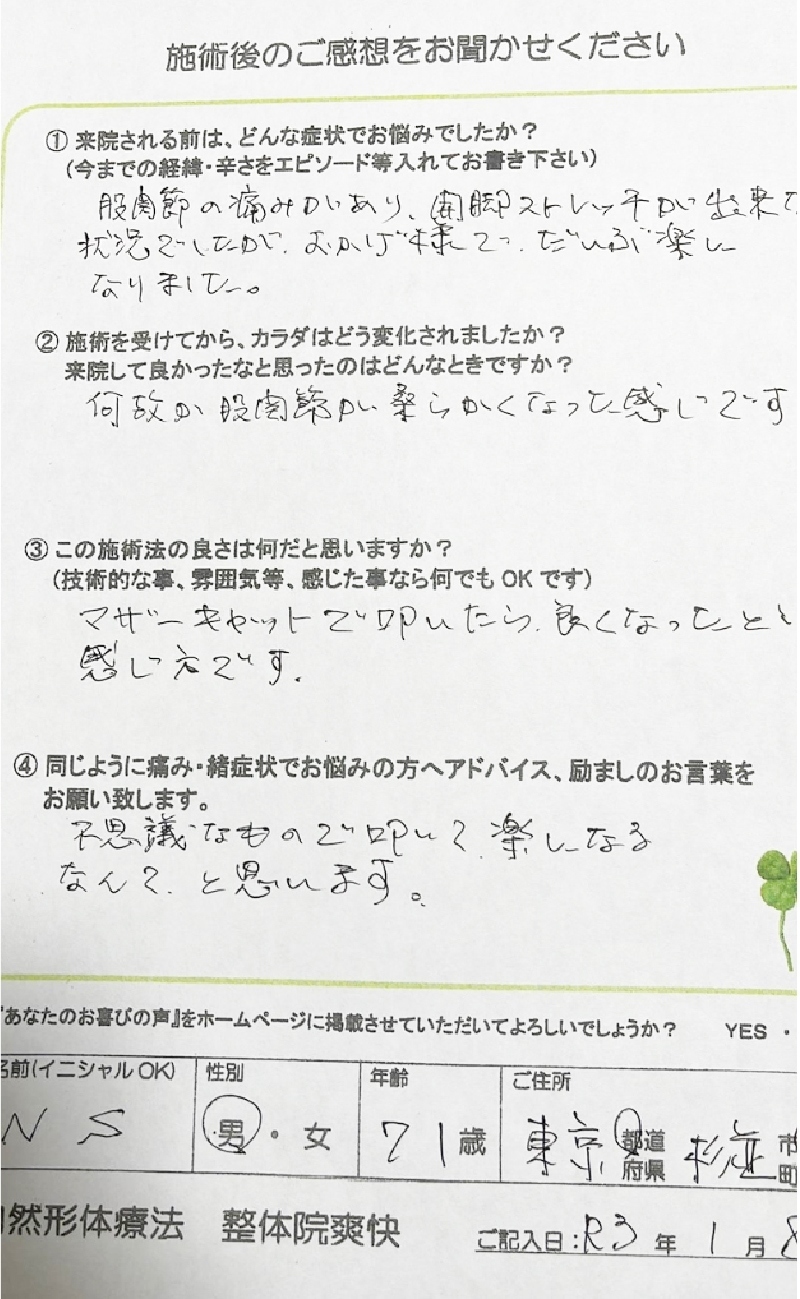 施術後のご感想をお聞かせください
① 来院される前は、どんな症状でお悩みでしたか？
(今までの経緯・辛さをエピソード等入れてお書き下さい)
股関節の痛みがあり、開脚ストレッチが出来な
状況でしたが、おかげ様で、だいぶ楽に
なりました。
② 施術を受けてから、カラダはどう変化されましたか？
来院して良かったなと思ったのはどんなときですか？
何故か股関節が柔らかくなった感じです
③ この施術法の良さは何だと思いますか？
(技術的な事、雰囲気等、感じた事なら何でもOKです)
マザーキャットで叩いたら、良くなったこと
感じ方です。
④ 同じように痛み・緒症状でお悩みの方へアドバイス、励ましのお言葉を
お願い致します。
不思議なもので叩いて、楽になる
なんて、と思います。
『あなたのお喜びの声』をホームページに掲載させていただいてよろしいでしょうか？ YES ・
名前(イニシャルOK) 性別 年齢 ご住所
N S 男・女 71歳 東京 都道府県 杉並 市町
然形体療法 整体院爽快 ご記入日：R3年1月8